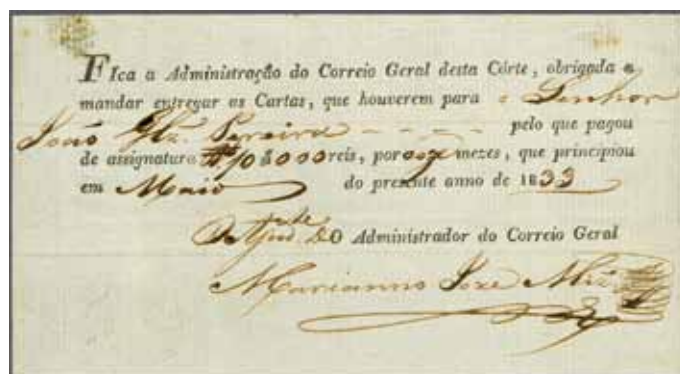 FIca a Administração do Correio Geral desta Côrte, obrigada a
mandar entregar as Cartas, que houverem para o Senhor
João Glz. Pereira - - - - pelo que pagou
de assignatura 10$000 reis, por mezes, que principiou
em Maio do presente anno de 1833
O Ajud.te DO Administrador do Correio Geral
Marianno Joze